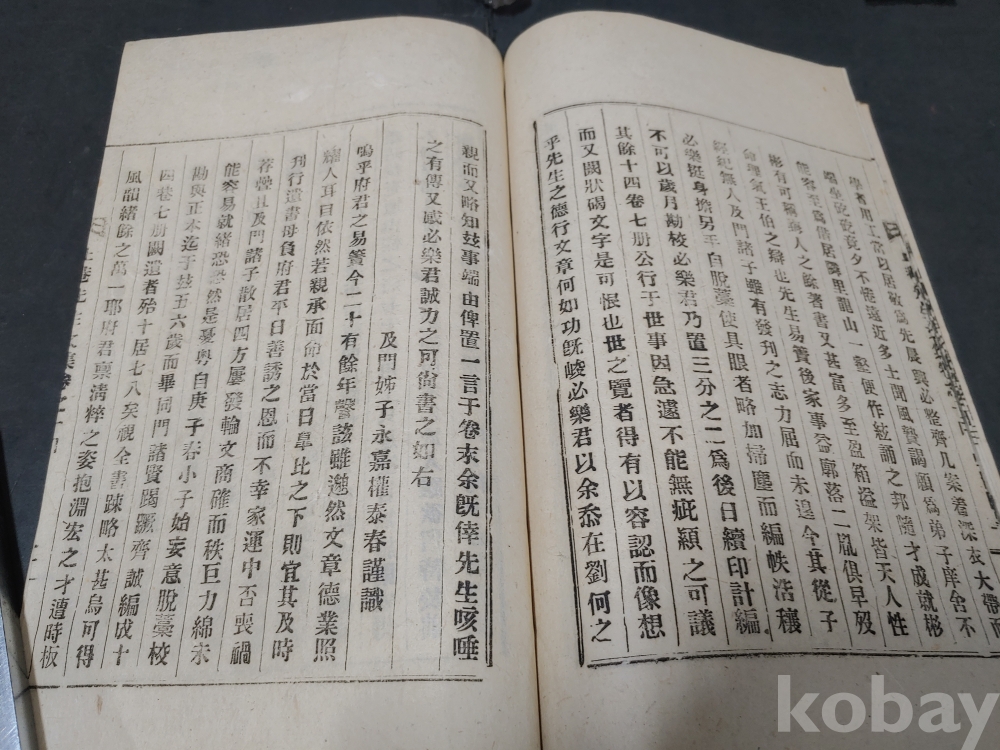 學者用工常以居敬爲先晨興必整齊几案着深衣大帶而
端坐乾乾竟夕不倦遠近多士聞風贄謁願爲弟子庠舍不
能容至爲僭居隣里龍山一壑便作絃誦之邦隨才成就彬
彬有可稱與人之餘著書又甚富多至盈箱溢架皆天人性
命理氣王伯之辯也先生易簀後家事益廓落二胤俱早歿
經紀無人及門諸子雖有發刊之志力屈而未遑今其從子
必樂挺身擔另手自脫藁使具眼者略加掃塵而編帙浩穰
不可以歲月勘校必樂君乃置三分之二爲後日續印計編
其餘十四卷七册公行于世事因急遽不能無疵纇之可議
而又闕狀碣文字是可恨也世之覽者得有以容認而像想
乎先生之德行文章何如功旣峻必樂君以余忝在劉何之
親而又略知玆事端由俾置一言于卷末余旣倖先生咳唾
之有傳又感必樂君誠力之可尙書之如右
及門姊子永嘉權泰春謹識
嗚乎府君之易簀今二十有餘年謦諺雖邈然文章德業照
爛人耳目依然若親承面命於當日臯比之下則宜其及時
刊行遺書毋負府君平日善誘之恩而不幸家運中否喪禍
荐疊且及門諸子散居四方屢發輪文商確而秩巨力綿未
能容易就緖恐恐然是憂粤自庚子春小子始妄意脫藁校
勘與正本迄于玆五六歲而畢同門諸賢因蹶齊誠編成十
四卷七册闕遺者殆十居七八矣視全書疎略太甚烏可得
風韻緖餘之萬一耶府君禀淸粹之姿抱淵宏之才遭時板
kobay